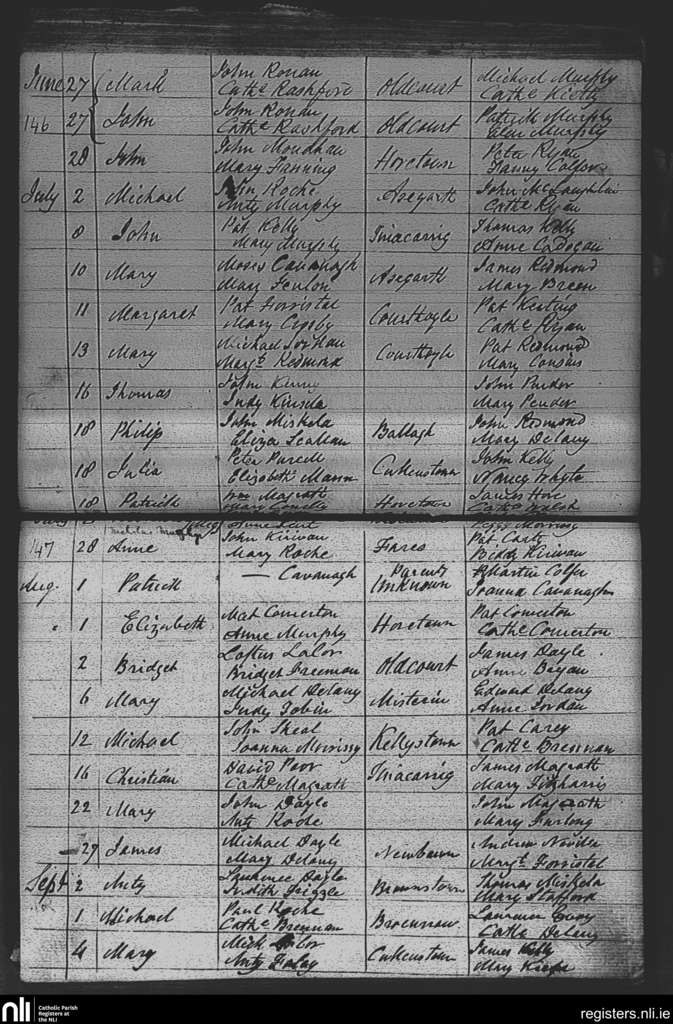 June 27 Mark John Ronan Oldcourt Michael Murphy
Cathe Rashford Cathe Kielty
146 27 John John Ronan Oldcourt Patrick Murphy
Cathe Rashford Elen Murphy
28 John John Horetown Peter Ryan
Mary Fanning Fanny Colfer
July 2 Michael John Roche Asegarth John McLaughlin
Anty Murphy Cathe Ryan
8 John Pat Kelly Tinacarrig Thomas Kelly
Mary Murphy Anne Cadogan
10 Mary Moses Cavanagh Asegarth James Redmond
Mary Fenlon Mary Breen
11 Margaret Pat Forristal Courthoyle Pat Keating
Mary Cathe Ryan
13 Mary Michael Courthoyle Pat Redmond
Margt Redmond Mary Cousins
16 Thomas John John
Judy Kinsela Mary Pender
18 Philip John Miskela Ballagh John Redmond
Eliza Mary Delany
18 Julia Peter Purcell Cullenstown John Kelly
Elizabeth Mann Nancy Whyte
18 Patrick Wm Magrath Horetown James Hore
Mary Cathe Walsh
147 28 Anne John Kirivan Fares Pat Carty
Mary Roche Biddy Kirivan
Aug. 1 Patrick — Cavanagh Parents Martin Colfer
Unknown Joanna Cavanagh
1 Elizabeth Mat Comerton Horetown Pat Comerton
Anne Murphy Cathe Comerton
2 Bridget Loftus Lalor Oldcourt James Doyle
Bridget Freeman Anne Bryan
6 Mary Michael Delany Misterin Edward Delany
Judy Tobin Anne Jordan
12 Michael John Sheal Kellystown Pat Carey
Joanna Morrissy Cathe Brennan
16 Christian David Poor Tinacarrig James Magrath
Cathe Magrath Mary Fitzharris
22 Mary John Doyle John Magrath
Anty Roche Mary Furlong
27 James Michael Doyle Newbawn Andrew
Mary Delany Margt Forristal
Sept 2 Anty Laurence Doyle Brownstown Thomas Miskela
Judith Frizzle Mary Stafford
1 Michael Paul Roche Laurence
Cathe Brennan Cathe Delany
4 Mary Mich Lalor Cullenstown James Kelly
Anty Mary
nli Catholic Parish
Registers at
the NLI
registers.nli.ie